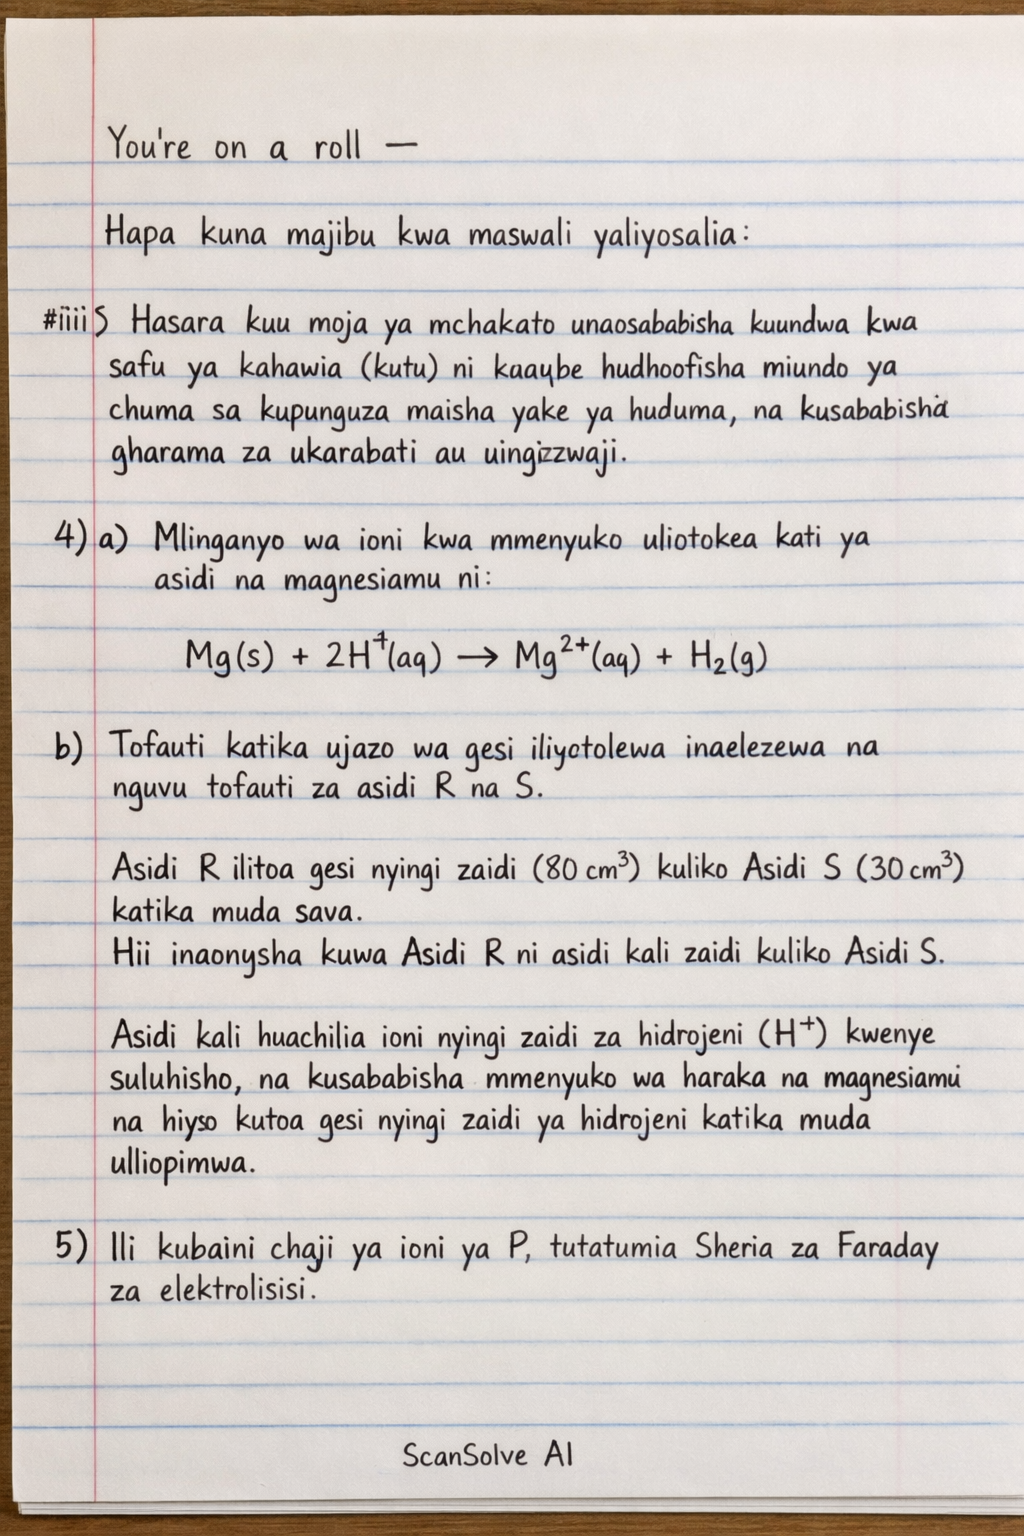 You're on a roll —
Hapa kuna majibu kwa maswali yaliyosalia:
#iiii5 Hasara kuu moja ya mchakato unaosababisha kuundwa kwa
safu ya kahawia (kutu) ni kaaybe hudhoofisha miundo ya
chuma sa kupunguza maisha yake ya huduma, na kusababisha
gharama za ukarabati au uingizzwaji.
4) a) Mlinganyo wa ioni kwa mmenyuko uliotokea kati ya
asidi na magnesiamu ni:
Mg(s) + 2H⁺(aq) → Mg²⁺(aq) + H₂(g)
b) Tofauti katika ujazo wa gesi iliyotolewa inaelezewa na
nguvu tofauti za asidi R na S.
Asidi R ilitoa gesi nyingi zaidi (80 cm³) kuliko Asidi S (30 cm³)
katika muda sava.
Hii inaonysha kuwa Asidi R ni asidi kali zaidi kuliko Asidi S.
Asidi kali huachilia ioni nyingi zaidi za hidrojeni (H⁺) kwenye
suluhisho, na kusababisha mmenyuko wa haraka na magnesiamu
na hiyso kutoa gesi nyingi zaidi ya hidrojeni katika muda
ulliopimwa.
5) Ili kubaini chaji ya ioni ya P, tutatumia Sheria za Faraday
za elektrolisisi.
ScanSolve AI